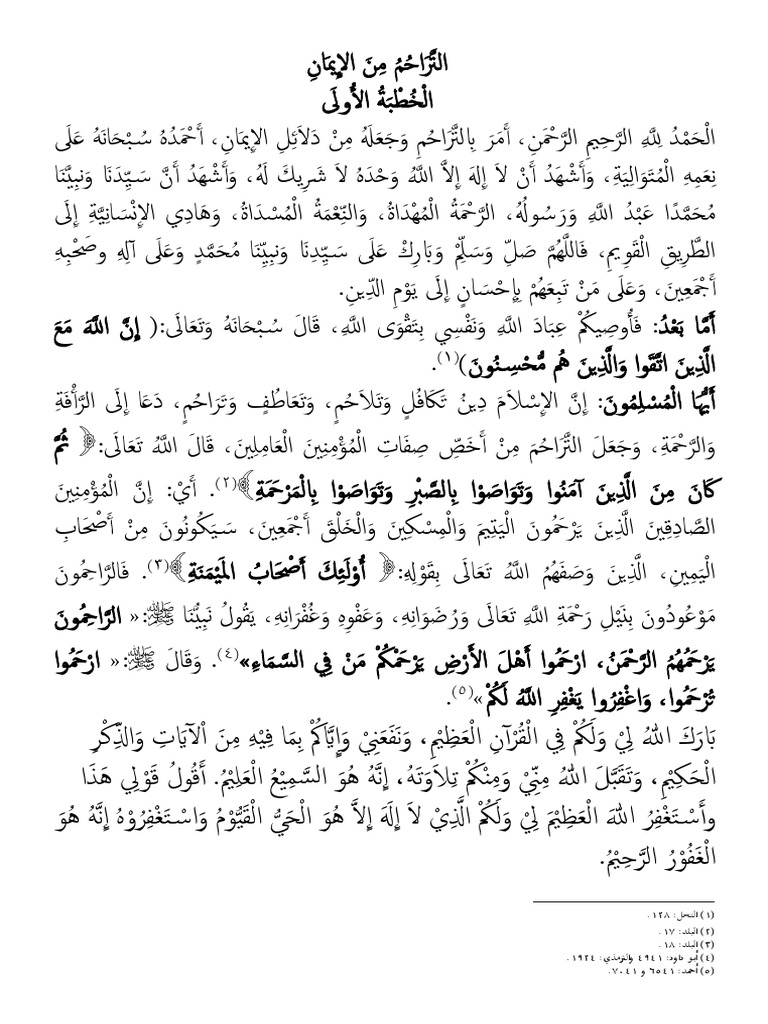 التَّرَاحُمُ مِنَ الإِيمَانِ
الْخُطْبَةُ الأُولَى
الْحَمْدُ لِلَّهِ الرَّحِيمِ الرَّحْمَنِ، أَمَرَ بِالتَّرَاحُمِ وَجَعَلَهُ مِنْ دَلاَئِلِ الإِيمَانِ، أَحْمَدُهُ سُبْحَانَهُ عَلَى
نِعَمِهِ الْمُتَوَالِيَةِ، وَأَشْهَدُ أَنْ لاَ إِلهَ إِلاَّ اللَّهُ وَحْدَهُ لاَ شَرِيكَ لَهُ، وَأَشْهَدُ أَنَّ سَيِّدَنَا وَنَبِيَّنَا
مُحَمَّدًا عَبْدُ اللَّهِ وَرَسُولُهُ، الرَّحْمَةُ الْمُهْدَاةُ، وَالنِّعْمَةُ الْمُسْدَاةُ، وَهَادِي الإِنْسَانِيَّةِ إِلَى
الطَّرِيقِ الْقَوِيمِ، فَاللَّهُمَّ صَلِّ وَسَلِّمْ وَبَارِكْ عَلَى سَيِّدِنَا وَنَبِيِّنَا مُحَمَّدٍ وَعَلَى آلِهِ وصَحْبِهِ
أَجْمَعِينَ، وَعَلَى مَنْ تَبِعَهُمْ بِإِحْسَانٍ إِلَى يَوْمِ الدِّينِ.
أَمَّا بَعْدُ: فَأُوصِيكُمْ عِبَادَ اللَّهِ وَنَفْسِي بِتَقْوَى اللَّهِ، قَالَ سُبْحَانَهُ وَتَعَالَى:( إِنَّ اللَّهَ مَعَ
الَّذِينَ اتَّقَوا وَالَّذِينَ هُم مُّحْسِنُونَ)(١).
أَيُّهَا الْمُسْلِمُونَ: إِنَّ الإِسْلاَمَ دِينُ تَكَافُلٍ وَتَلاَحُمٍ، وَتَعَاطُفٍ وَتَرَاحُمٍ، دَعَا إِلَى الرَّأْفَةِ
وَالرَّحْمَةِ، وَجَعَلَ التَّرَاحُمَ مِنْ أَخَصِّ صِفَاتِ الْمُؤْمِنِينَ الْعَامِلِينَ، قَالَ اللَّهُ تَعَالَى:﴿ ثُمَّ
كَانَ مِنَ الَّذِينَ آمَنُوا وَتَوَاصَوْا بِالصَّبْرِ وَتَوَاصَوْا بِالْمَرْحَمَةِ﴾(٢). أَيْ: إِنَّ الْمُؤْمِنِينَ
الصَّادِقِينَ الَّذِينَ يَرْحَمُونَ الْيَتِيمَ وَالْمِسْكِينَ وَالْخَلْقَ أَجْمَعِينَ، سَيَكُونُونَ مِنْ أَصْحَابِ
الْيَمِينِ، الَّذِينَ وَصَفَهُمُ اللَّهُ تَعَالَى بِقَوْلِهِ:﴿ أُوْلَئِكَ أَصْحَابُ المَيْمَنَةِ﴾(٣). فَالرَّاحِمُونَ
مَوْعُودُونَ بِنَيْلِ رَحْمَةِ اللَّهِ تَعَالَى وَرُضْوَانِهِ، وَعَفْوِهِ وَغُفْرَانِهِ، يَقُولُ نَبِيُّنَا ﷺ:« الرَّاحِمُونَ
يَرْحَمُهُمُ الرَّحْمَنُ، ارْحَمُوا أَهْلَ الأَرْضِ يَرْحَمْكُمْ مَنْ فِي السَّمَاءِ»(٤). وَقَالَ ﷺ:« ارْحَمُوا
تُرْحَمُوا، وَاغْفِرُوا يَغْفِرِ اللَّهُ لَكُمْ»(٥).
بَارَكَ اللهُ لِيْ وَلَكُمْ فِي الْقُرْآنِ الْعَظِيْمِ، وَنَفَعَنِيْ وَإِيَّاكُمْ بِمَا فِيْهِ مِنَ اْلآيَاتِ وَالذِّكْرِ
الْحَكِيْمِ، وَتَقَبَّلَ اللهُ مِنِّيْ وَمِنْكُمْ تِلاَوَتَهُ، إِنَّهُ هُوَ السَّمِيْعُ الْعَلِيْمُ. أَقُولُ قَوْلِي هَذَا
وأَسْتَغْفِرُ اللهَ الْعَظِيْمَ لِيْ وَلَكُمْ الَّذِيْ لاَ إِلَهَ إِلاَّ هُوَ الْحَيُّ الْقَيُّوْمُ وَاسْتَغْفِرُوْهُ إِنَّهُ هُوَ
الْغَفُوْرُ الرَّحِيْمُ.
(١) النحل: ١٢٨ .
(٢) البلد: ١٧ .
(٣) البلد: ١٨ .
(٤) أبو داود: ٤٩٤١ والترمذي: ١٩٢٤ .
(٥) أحمد: ٦٥٤١ و ٧٠٤١.